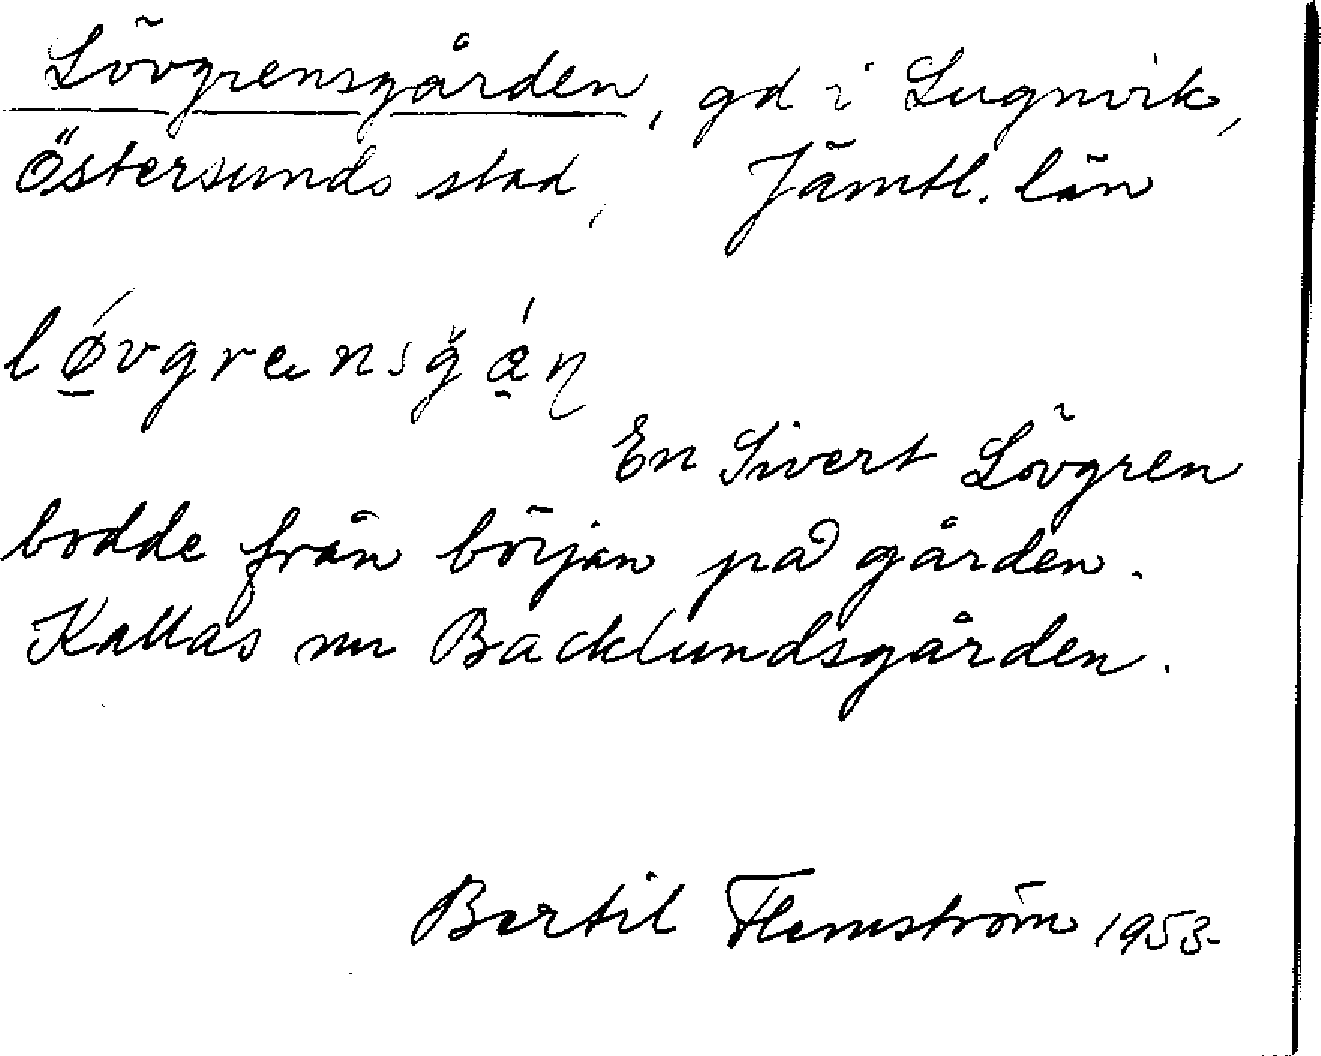 Lövgrensgården, gd i Lugnvik,
Östersunds stad, Jämtl. län
lǿvgrensgǻn
En Sivert Lövgren
bodde från början på gården.
Kallas nu Backlundsgården.
Bertil Flemström 1953.